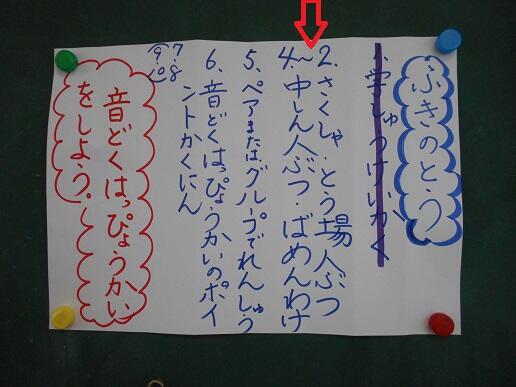 ふきのとう
学しゅうけいかく
2. さくしゃ・とう場人ぶつ
〜4. 中しん人ぶつ・ばめんわけ
5、ペアまたはグループでれんしゅう
6、音どくはっぴょうかいのポイ
ントかくにん
7.8
9.10
音どくはっぴょうかい
をしよう。